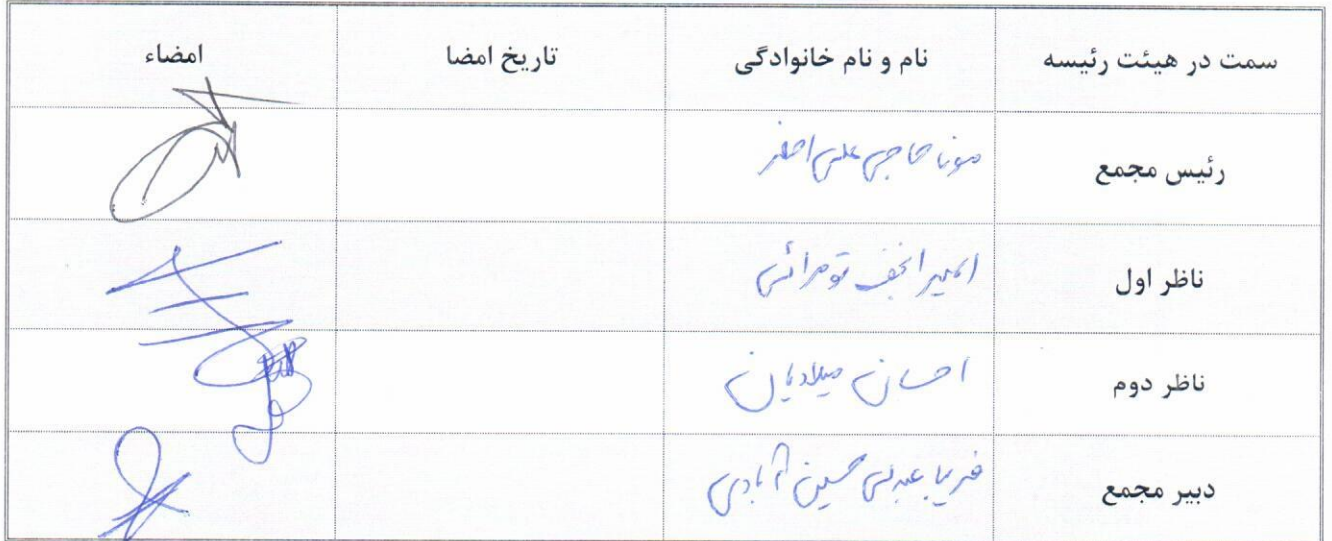 سمت در هیئت رئیسه نام و نام خانوادگی تاریخ امضا امضاء
رئیس مجمع مونا حاجی علی اصغر
ناظر اول امیر نجف تومرائی
ناظر دوم احسان میلادیان
دبیر مجمع فریبا عبدلی حسین آبادی